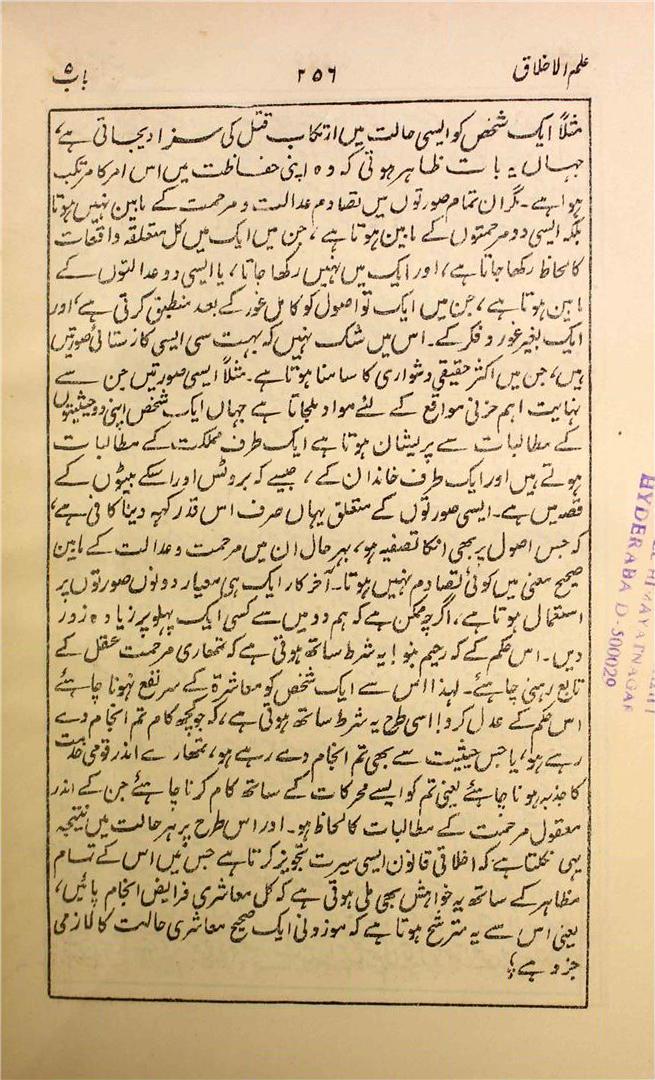 علم الاخلاق ۲۵۶ باب ۵
مثلاً ایک شخص کو ایسی حالت میں ارتکاب قتل کی سزا دیجاتی ہے،
جہاں یہ بات ظاہر ہوتی کہ وہ اپنی حفاظت میں اس امر کا مرتکب
ہوا ہے۔ مگر ان تمام صورتوں میں تصادم عدالت و مرحمت کے مابین نہیں ہوتا
بلکہ ایسی دو مرحمتوں کے مابین ہوتا ہے، جن میں ایک میں کل متعلقہ واقعات
کا لحاظ رکھا جاتا ہے، اور ایک میں نہیں رکھا جاتا، یا ایسی دو عدالتوں کے
مابین ہوتا ہے، جن میں ایک تو اصول کو کامل غور کے بعد منطبق کرتی ہے، اور
ایک بغیر غور و فکر کے۔ اس میں شک نہیں کہ بہت سی ایسی کازستائی صورتیں
ہیں، جن میں اکثر حقیقی دشواری کا سامنا ہوتا ہے۔ مثلاً ایسی صورتیں جن سے
نہایت اہم حزنی مواقع کے لئے مواد ملجاتا ہے جہاں ایک شخص اپنی دو حیثیتوں
کے مطالبات سے پریشان ہوتا ہے ایک طرف مملکت کے مطالبات
ہوتے ہیں اور ایک طرف خاندان کے، جیسے کہ بروٹس اور اسکے بیٹوں کے
قصہ میں ہے۔ ایسی صورتوں کے متعلق یہاں صرف اس قدر کہہ دینا کافی ہے،
کہ جس اصول پر بھی انکا تصفیہ ہو، بہر حال ان میں مرحمت و عدالت کے مابین
صحیح معنی میں کوئی تصادم نہیں ہوتا۔ آخر کار ایک ہی معیار دونوں صورتوں پر
استعمال ہوتا ہے، اگرچہ ممکن ہے کہ ہم دو میں سے کسی ایک پہلو پر زیادہ زور
دیں۔ اس حکم کے کہ رحیم بنو! یہ شرط ساتھ ہوتی ہے کہ تمھاری مرحمت عقل کے
تابع رہنی چاہئے۔ لہذا اس سے ایک شخص کو معاشرۃ کے سر نفع نہونا چاہئے
اس حکم کے عدل کرو! اسی طرح یہ شرط ساتھ ہوتی ہے، کہ جو کچھ کام تم انجام دے
رہے ہو، یا جس حیثیت سے بھی تم انجام دے رہے ہو، تمھارے اندر قومی خدمت
کا جذبہ ہونا چاہئے یعنی تم کو ایسے محرکات کے ساتھ کام کرنا چاہئے جن کے اندر
معقول مرحمت کے مطالبات کا لحاظ ہو۔ اور اس طرح پر ہر حالت میں نتیجہ
یہی نکلتا ہے کہ اخلاقی قانون ایسی سیرت تجویز کرتا ہے جس میں اس کے تمام
مظاہر کے ساتھ یہ خواہش بھی ملی ہوتی ہے کہ کل معاشری فرایض انجام پائیں،
یعنی اس سے یہ مترشح ہوتا ہے کہ موزونی ایک صحیح معاشری حالت کا لازمی
جزو ہے؛
HIMAYATNAGAR
HYDERABAD-500029